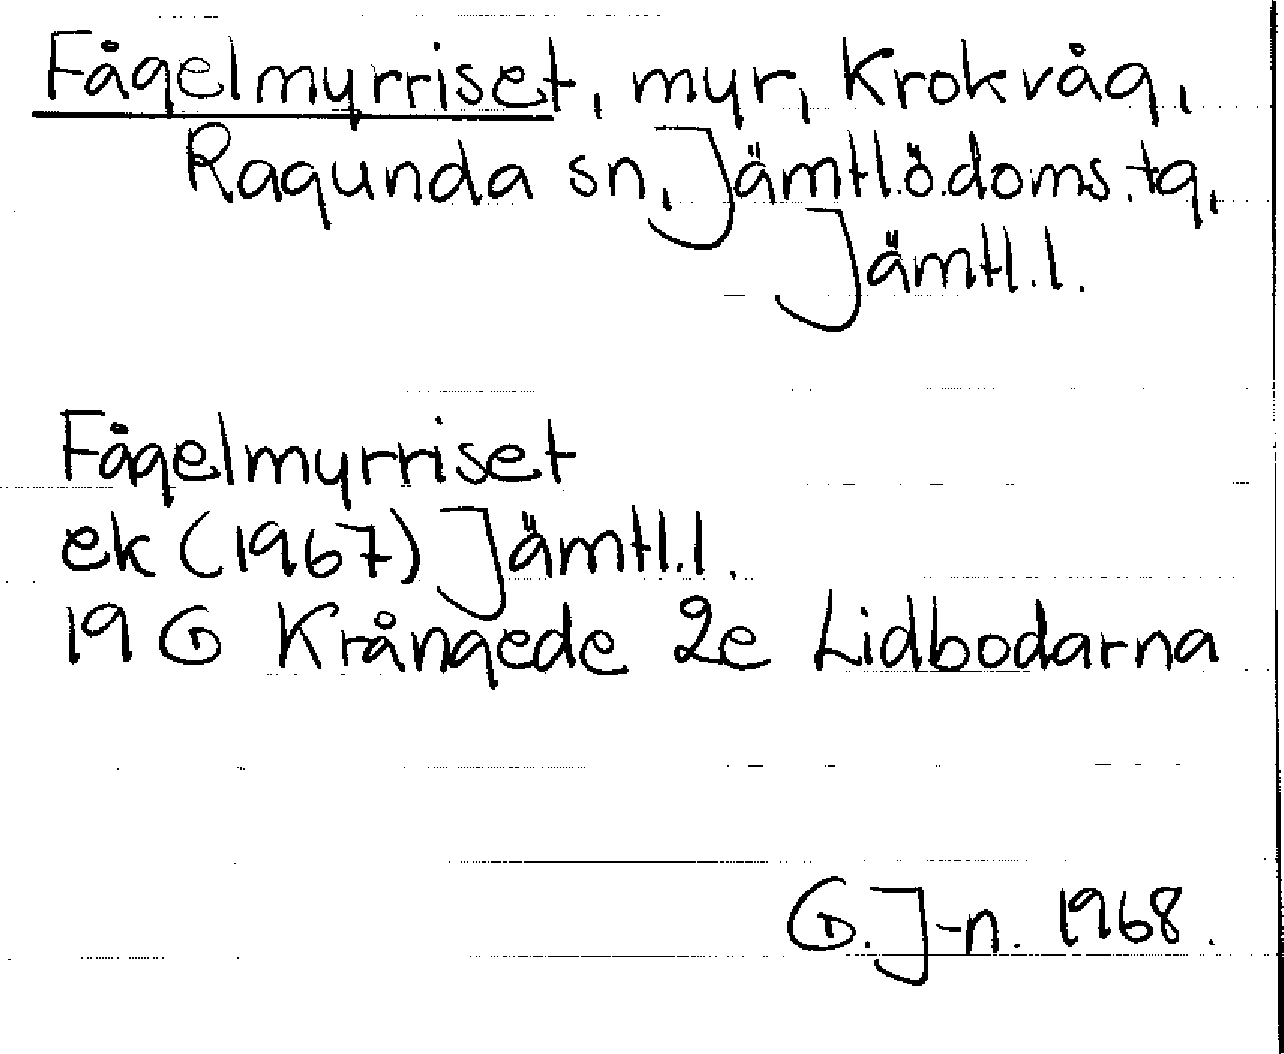 Fågelmyrriset, myr, Krokvåg,
Ragunda sn, Jämtl.ö.doms.tg,
Jämtl.l.
Fågelmyrriset
ek (1967) Jämtl.l.
19 G Krångede 2e Lidbodarna
G. J-n. 1968.